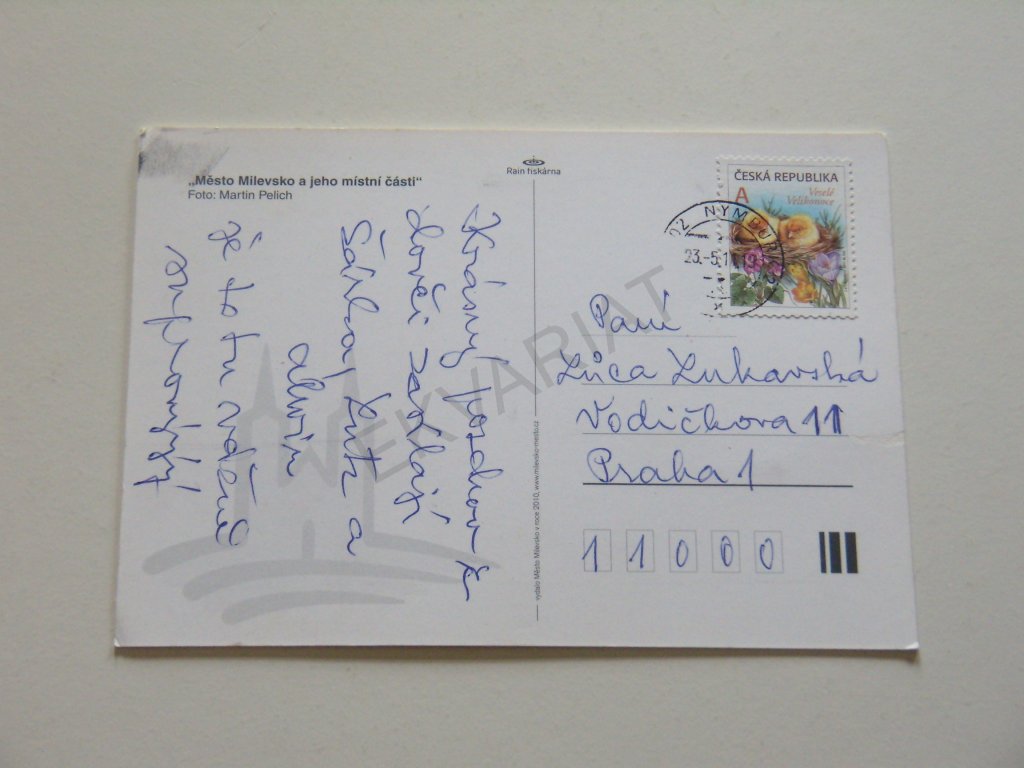 „Město Milevsko a jeho místní části“
Foto: Martin Pelich
Rain tiskárna
Krásný pozdrav z
zasílají
Šárka, Lutz a
že to tu
vydalo Město Milevsko v roce 2010, www.milevsko-mesto.cz
ČESKÁ REPUBLIKA
A
Veselé
Velikonoce
02 NYMBURK 2
23.-5.1
Paní
Lůca Lukavská
Vodičkova 11
Praha 1
11000
EKVARIAT